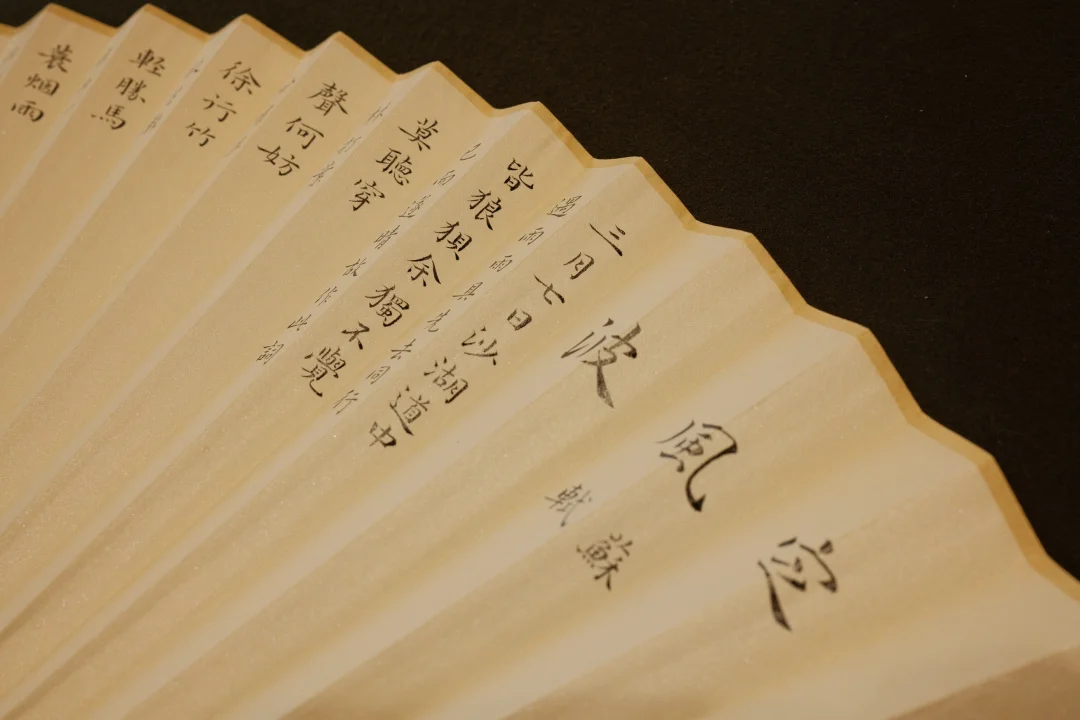 定風波
蘇軾
三月七日沙湖道中
遇雨雨具先去同行
皆狼狽余獨不覺
已而遂晴故作此詞
莫聽穿
林打葉
聲何妨
徐行竹
輕勝馬
蓑烟雨